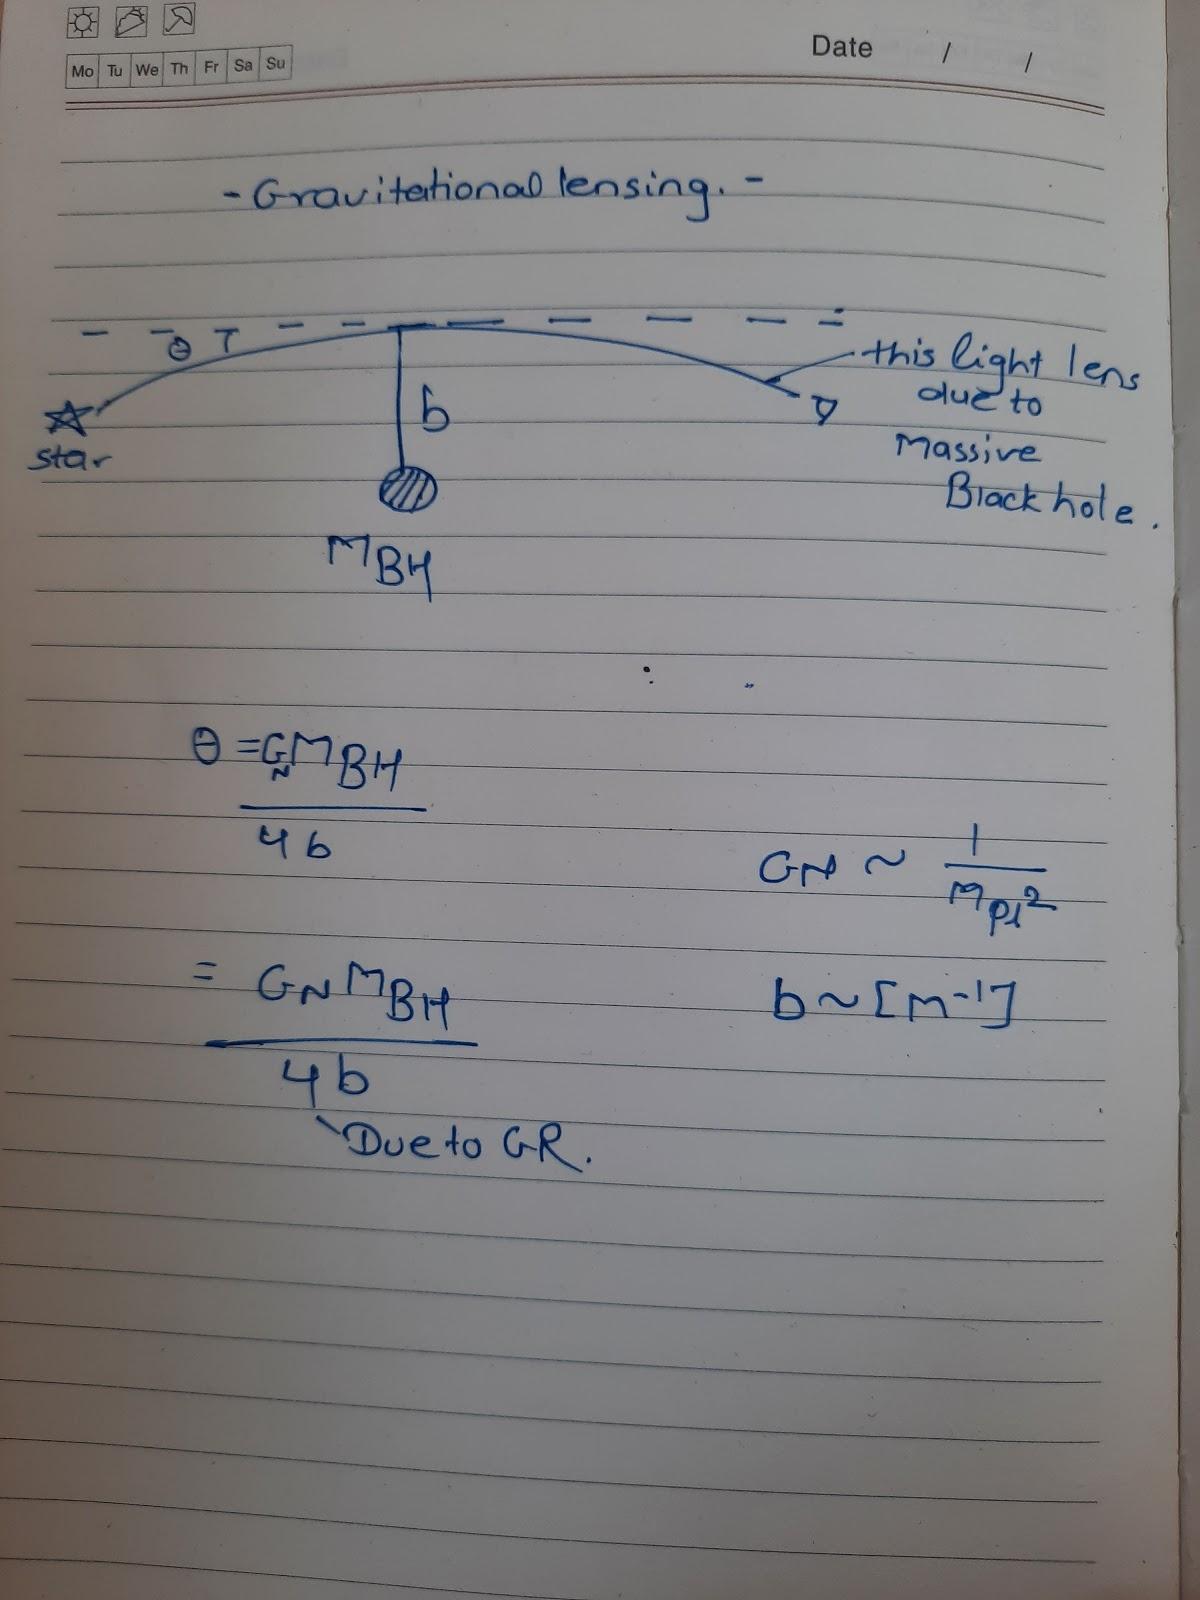 Mo Tu We Th Fr Sa Su
Date / /
- Gravitational lensing. -
θ
this light lens
due to
Massive
Black hole.
star
b
MBH
θ = GNMBH
4b
GN ~ 1
Mpl²
= GNMBH
4b
b ~ [M⁻¹]
Due to GR.